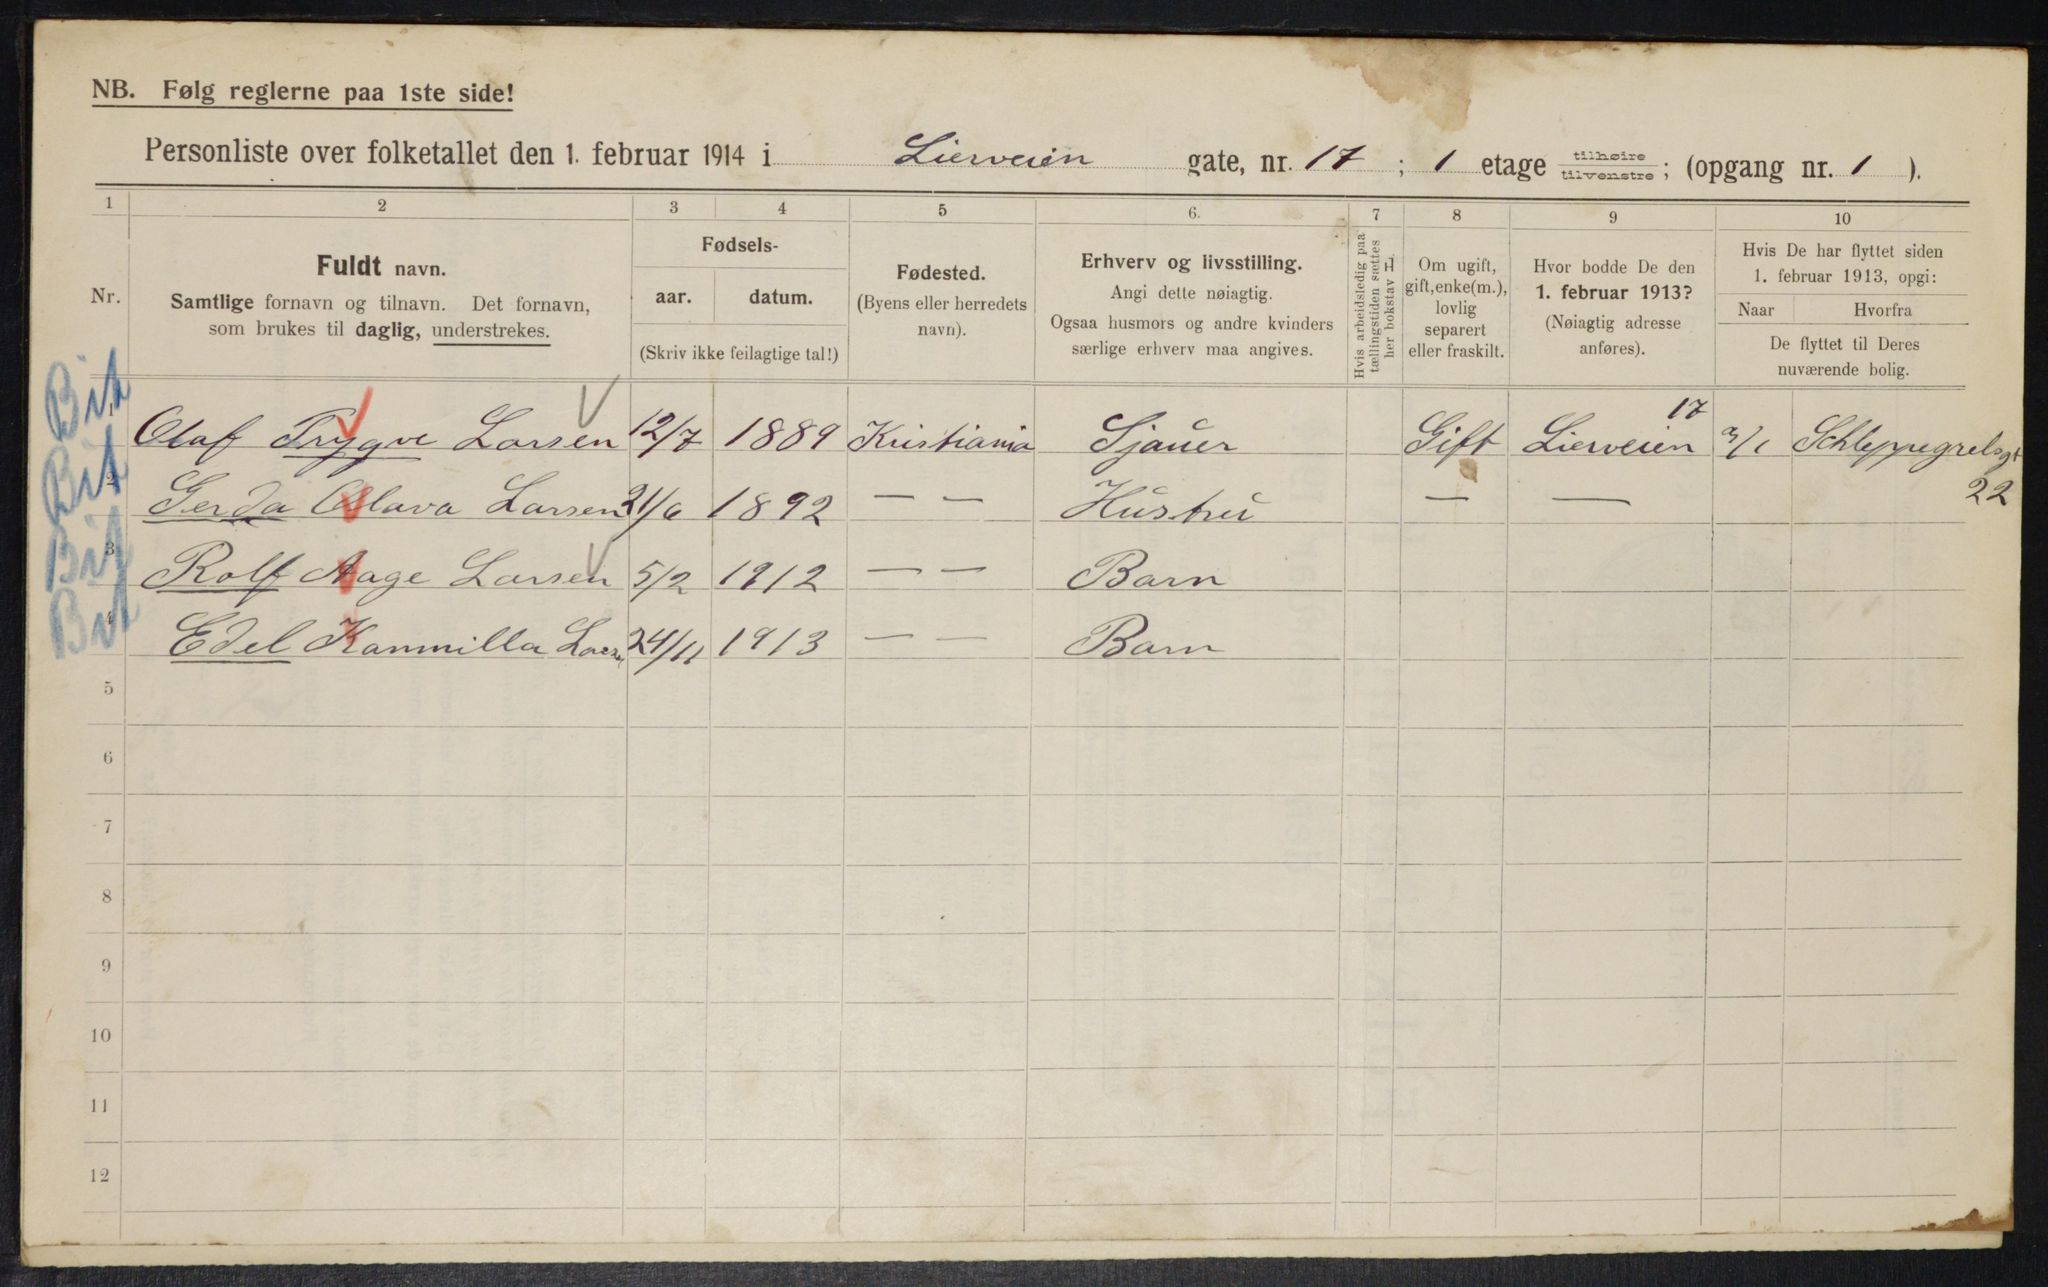 NB. Følg reglerne paa 1ste side!
Personliste over folketallet den 1. februar 1914 i Lierveien gate, nr. 17 ; 1 etage tilhøire tilvenstre ; (opgang nr. 1 ).
1 2 3 4 5 6. 7 8 9 10
Nr.
Fuldt navn.
Samtlige fornavn og tilnavn. Det fornavn,
som brukes til daglig, understrekes.
Fødsels-
aar. datum.
(Skriv ikke feilagtige tal!)
Fødested.
(Byens eller herredets
navn).
Erhverv og livsstilling.
Angi dette nøiagtig.
Ogsaa husmors og andre kvinders
særlige erhverv maa angives.
Hvis arbeidsledig paa
tællingstiden sættes
her bokstav L.
Om ugift,
gift, enke(m.),
lovlig
separert
eller fraskilt.
Hvor bodde De den
1. februar 1913?
(Nøiagtig adresse
anføres).
Hvis De har flyttet siden
1. februar 1913, opgi:
Naar Hvorfra
De flyttet til Deres
nuværende bolig.
Bit
1 Olaf Trygve Larsen 12/7 1889 Kristiania Sjauer Gift Lierveien 17 3/1 Schleppegrelsgt 22
Bit
2 Gerda Olava Larsen 21/6 1892 — — Hustru — —
Bit
3 Rolf Aage Larsen 5/2 1912 — — Barn
Bit
4 Edel Kammilla Larsen 24/11 1913 — — Barn
5
6
7
8
9
10
11
12